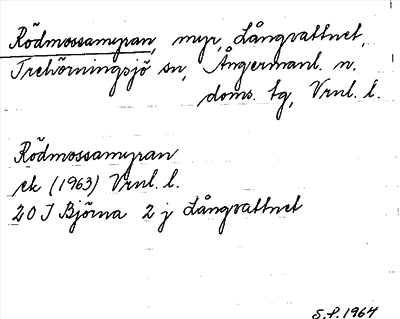 Rödmossamyran, myr, Långvattnet,
Trehörningsjö sn, Ångermanl. n.
doms. tg, Vrnl. l.
Rödmossamyran
ek (1963) Vrnl. l.
20 I Björna 2 j Långvattnet
S.F. 1964